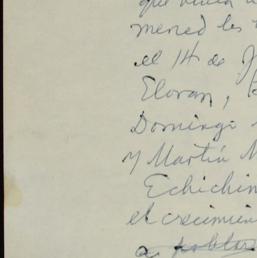 que
merced les
el 14 de J
Eloran,
Domingo
y Martín M
Echichin
el crecimien
a poblar